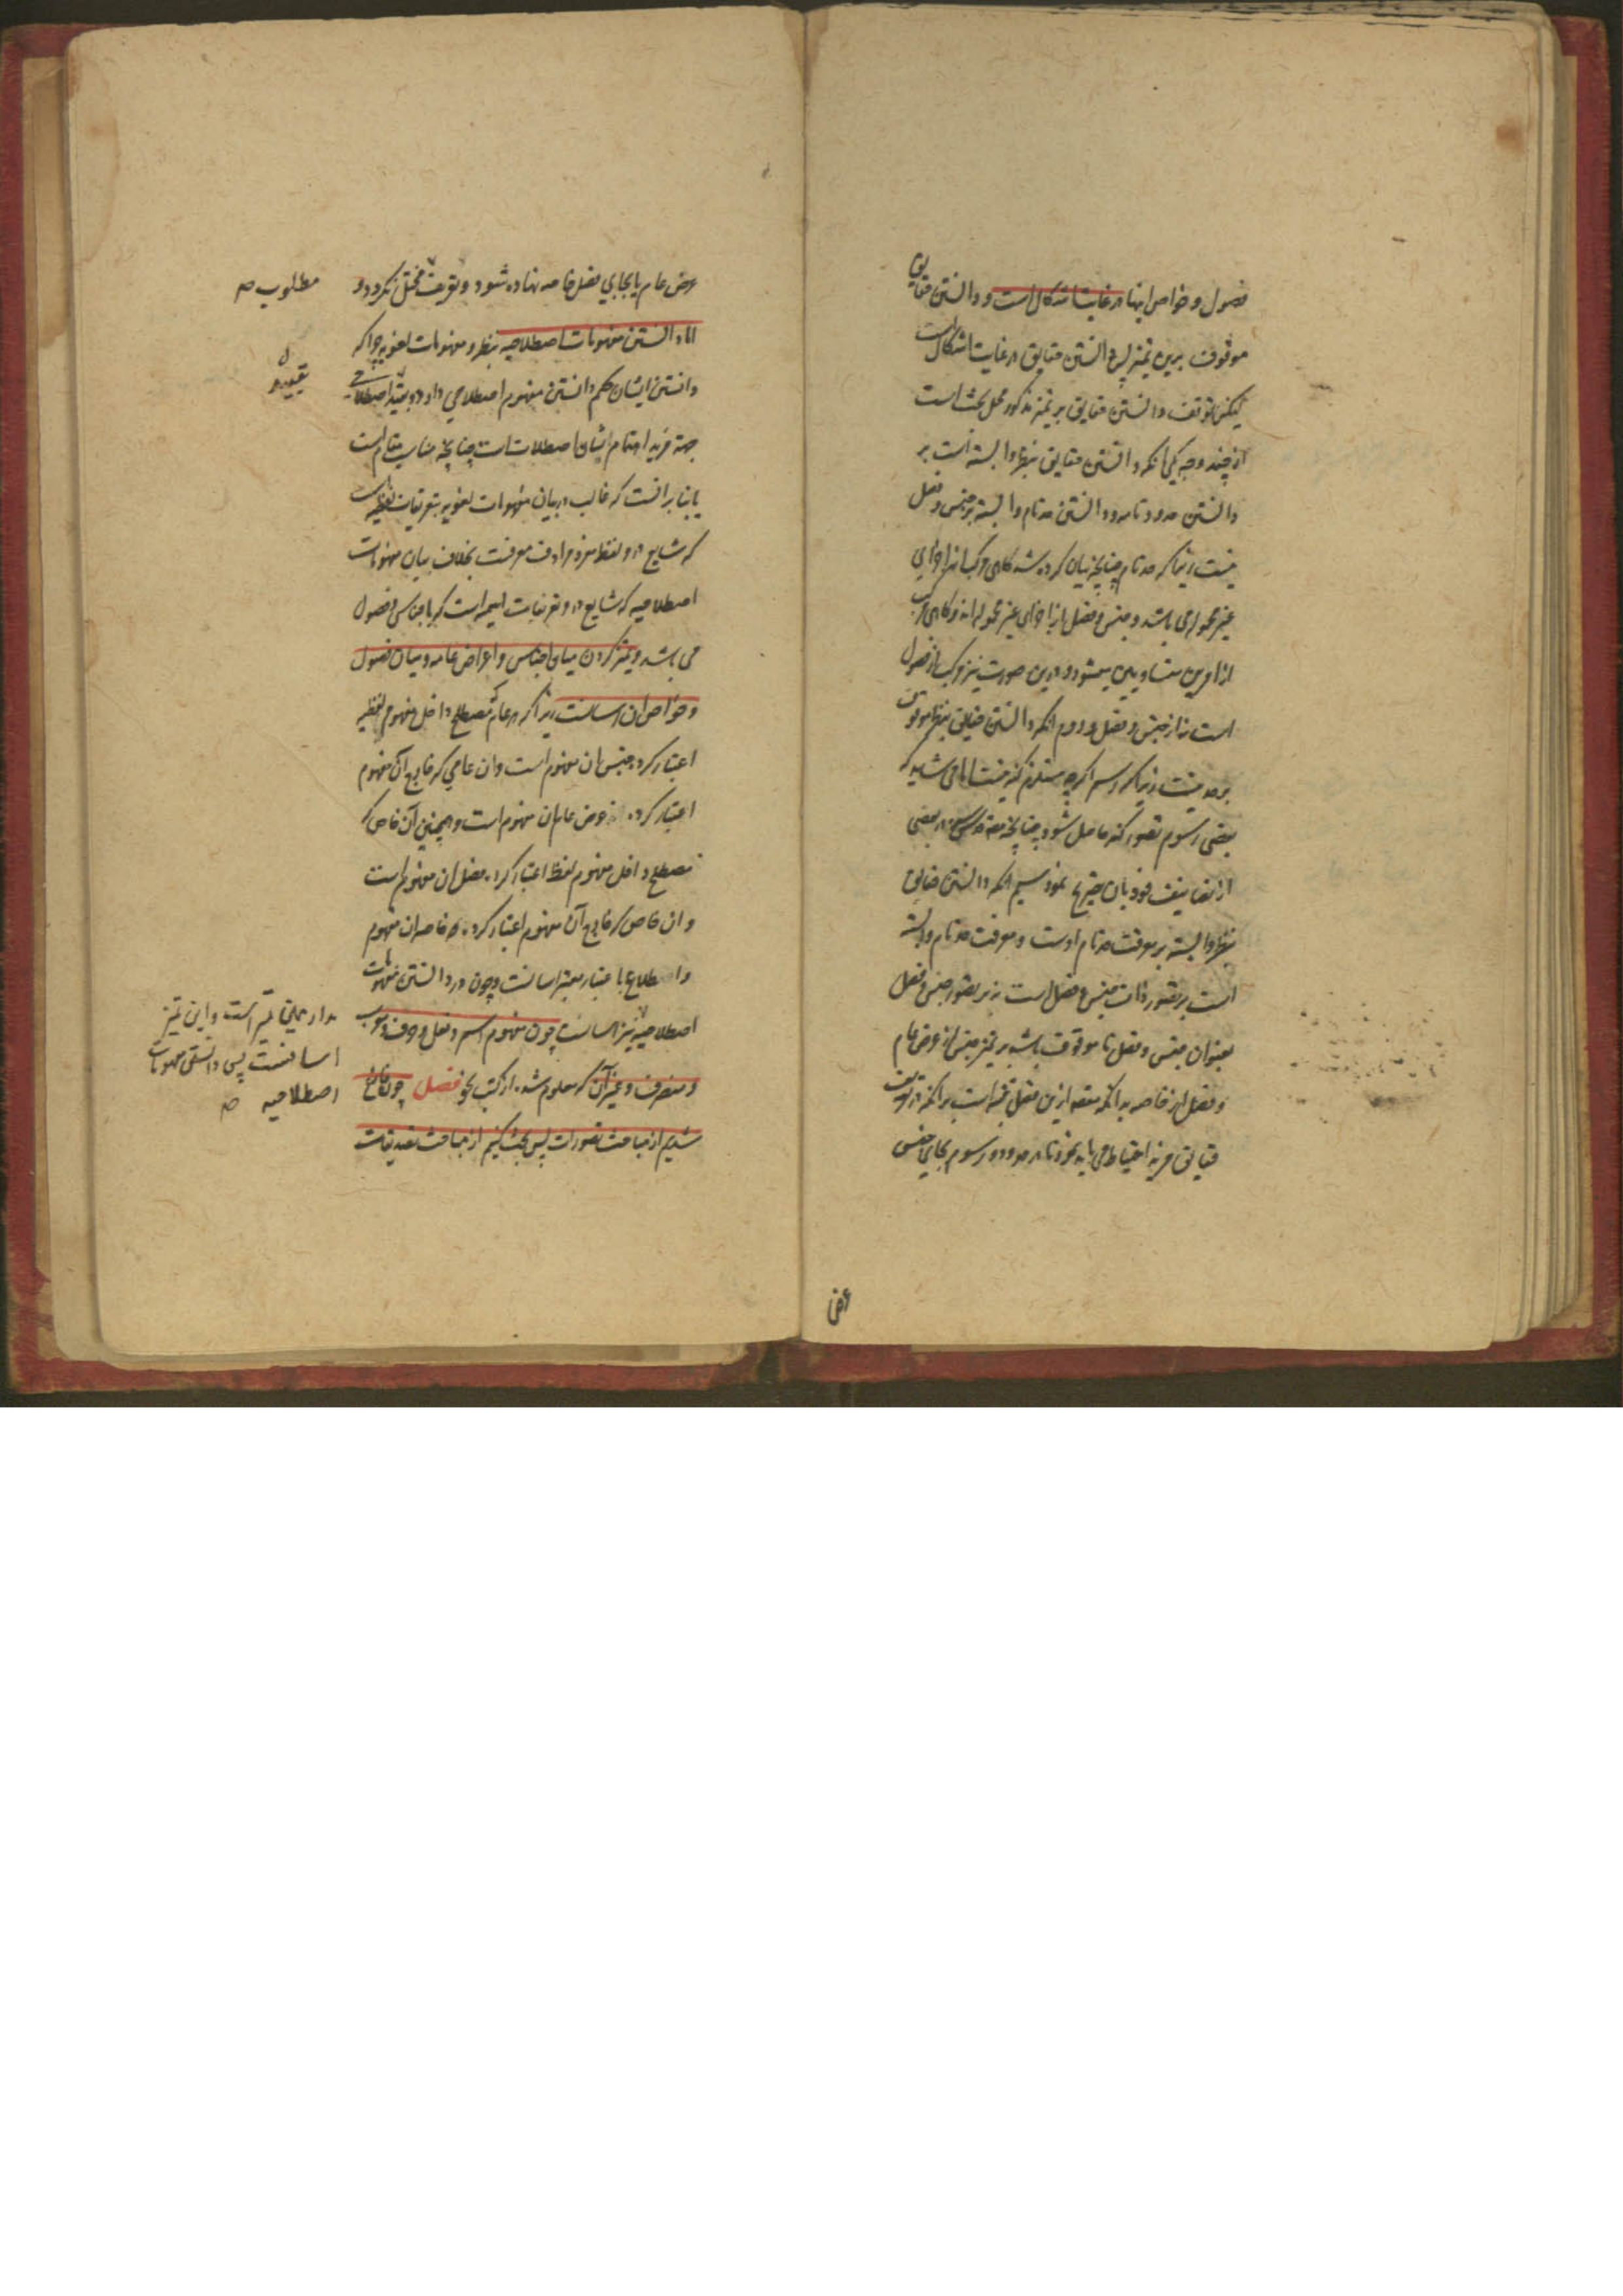 فصول و خواص اینها در غایت اشکال است و دانستن حقایق
موقوف برین تمیز پس دانستن حقایق در غایت اشکال است
لیکن توقف دانستن حقایق بر تمیز مذکور محل بحث است
از چند وجه یکی آنکه دانستن حقایق بنظر وابسته است بر
دانستن حدود تامه و دانستن حد تام وابسته بر جنس و فصل
نیست زیرا که حد تام چنانچه بیان کرده شد گاهی مرکب از اجزای
غیر محموله می باشد و جنس و فصل از اجزای غیر محموله اند و گاهی مرکب
از امرین متساویین میشود و درین صورت نیز مرکب از فصول
است نه از جنس و فصل و دوم آنکه دانستن حقایق بنظر موقوف
بر حد نیست زیرا که رسم اگرچه مستلزم کنه نیست اما می شاید که
ببعضی رسوم تصور کنه حاصل شود چنانچه در بعضی
از تصانیف خود بان تصریح نمود سیم آنکه دانستن حقایق
بنظر وابسته بر معرفت حد تام اوست و معرفت حد تام وابسته
است بر تصور ذات جنس و فصل است نه بر تصور جنس و فصل
بعنوان جنس و فصل تا موقوف باشد بر تمیز جنس از عرض عام
و فصل از خاصه بدانکه مقصد ازین فصل تنبیه است بر آنکه در تعریف
حقایق مزید احتیاط می باید نمود تا در حدود و رسوم بجای جنس
عرض
عرض عام یا بجای فصل خاصه نهاده شود و تعریف مختل نگردد و
مطلوب صح
اما دانستن مفهومات اصطلاحیه بنظر و مفهومات لغویه چرا که
دانستن ایشان حکم دانستن مفهوم اصطلاحی دارد و تقیید اصطلاحی
تقیید
جهة مزید اهتمام بشان اصطلاحات است چنانچه مناسب مقام است
یا بنا بر آنست که غالب در بیان مفهومات لغویه بتعریفات لفظیه است
که شایع درو لفظ مفرد مرادف معرفست بخلاف بیان مفهومات
اصطلاحیه که شایع درو تعریفات اسمیه است که باجناس و فصول
می باشد و تمیز کردن میان اجناس و اعراض عامه و میان فصول
و خواص آن آسانست زیرا که هر عام که مصطلح داخل مفهوم لفظیه
اعتبار کرده جنس آن مفهوم است و آن عامی که خارج آن مفهوم
اعتبار کرده عرض عام آن مفهوم است و همچنین آن خاص که
مصطلح داخل مفهوم لفظ اعتبار کرده فصل آن مفهوم است
و آن خاص که خارج آن مفهوم اعتبار کرده خاصه آن مفهوم
و اطلاع باعتبار معتبر آسانست و چون در دانستن مفهومات
مدار همین تمیز است و این تمیز
آسانست پس دانستن مفهومات
اصطلاحیه صح
اصطلاحیه نیز آسانست چون مفهوم اسم و فعل و حرف و معرب
و منصرف و غیر آن که معلوم شد از کتب نحو فصل چون فارغ
شدیم از مباحث تصورات پس بحث کنیم از مباحث تصدیقات